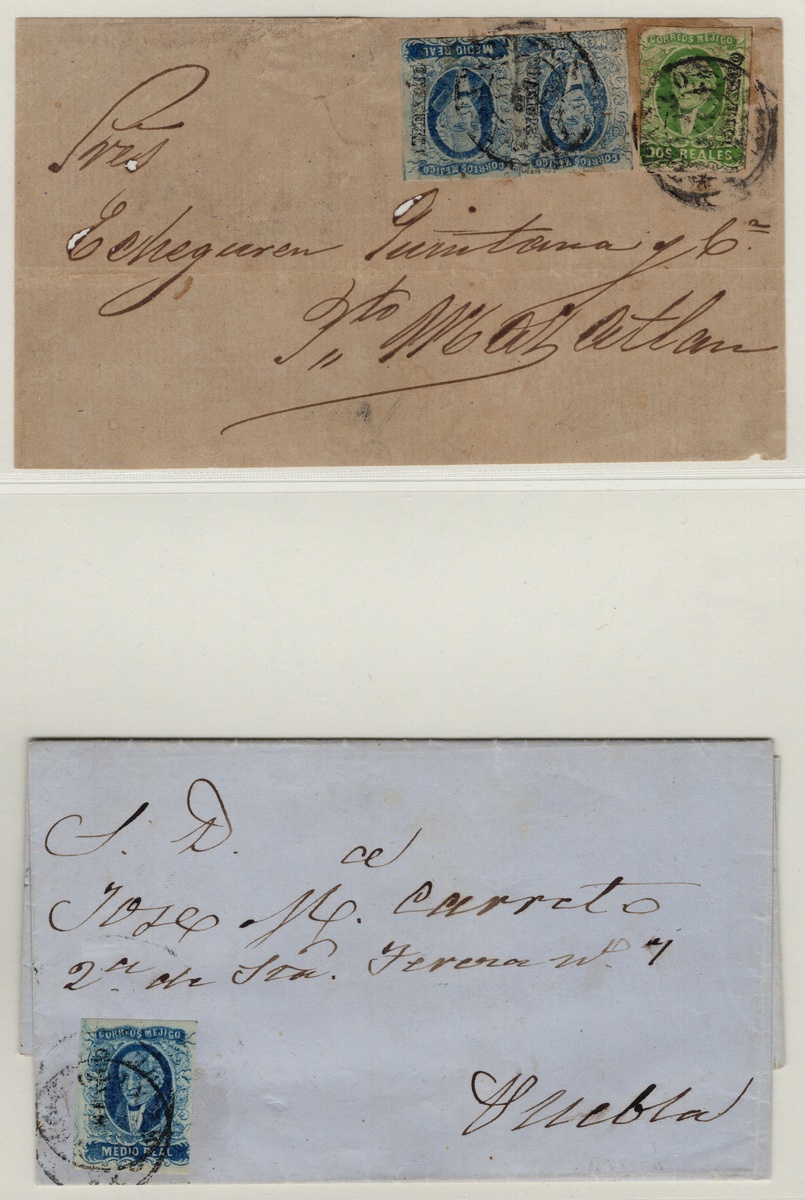 MEDIO REAL
CORREOS MEJICO
MEDIO REAL
CORREOS MEJICO
CORREOS MEJICO
DOS REALES
Sres
Echeguren Quintana y Ca
Pto Mazatlan
S. D.
Jose Ma. de Carreto
2a de Sta. Teresa No. 7
CORREOS MEJICO
MEDIO REAL
Puebla